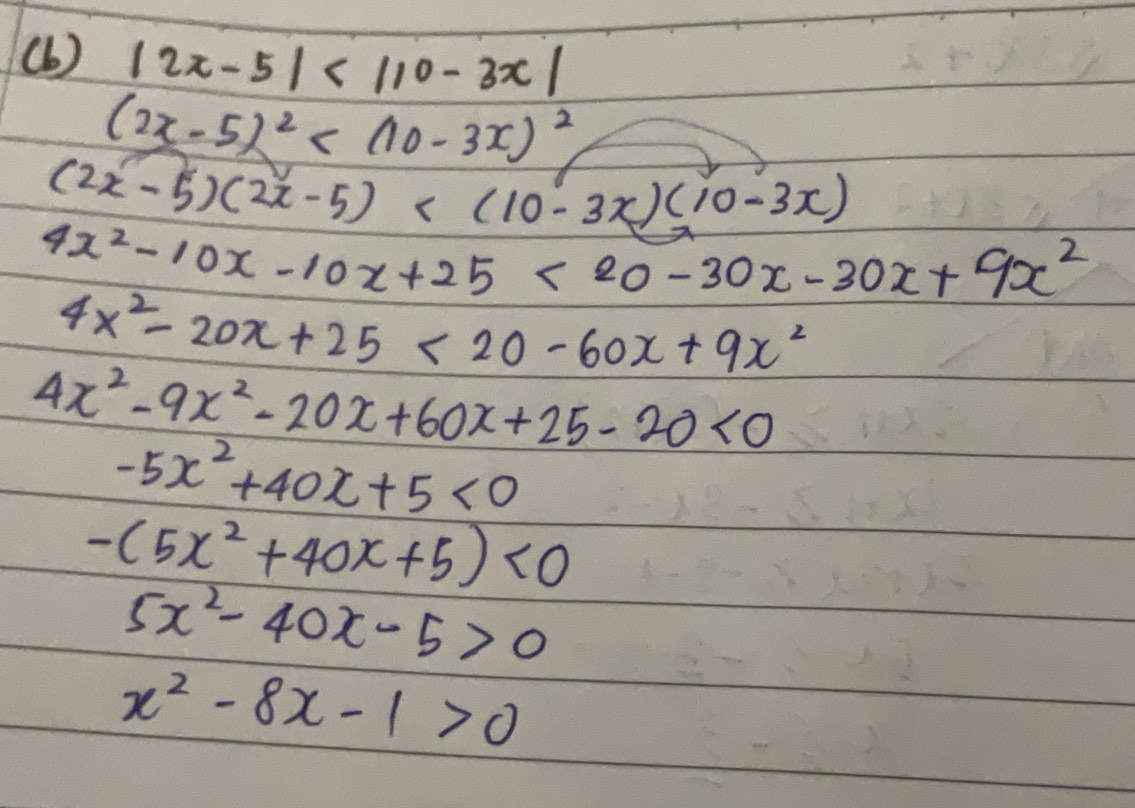 (b) |2x-5| < |10-3x|
(2x-5)² < (10-3x)²
(2x-5)(2x-5) < (10-3x)(10-3x)
4x²-10x-10x+25 < 20-30x-30x+9x²
4x²-20x+25 < 20-60x+9x²
4x²-9x²-20x+60x+25-20<0
-5x²+40x+5<0
-(5x²+40x+5)<0
5x²-40x-5>0
x²-8x-1>0